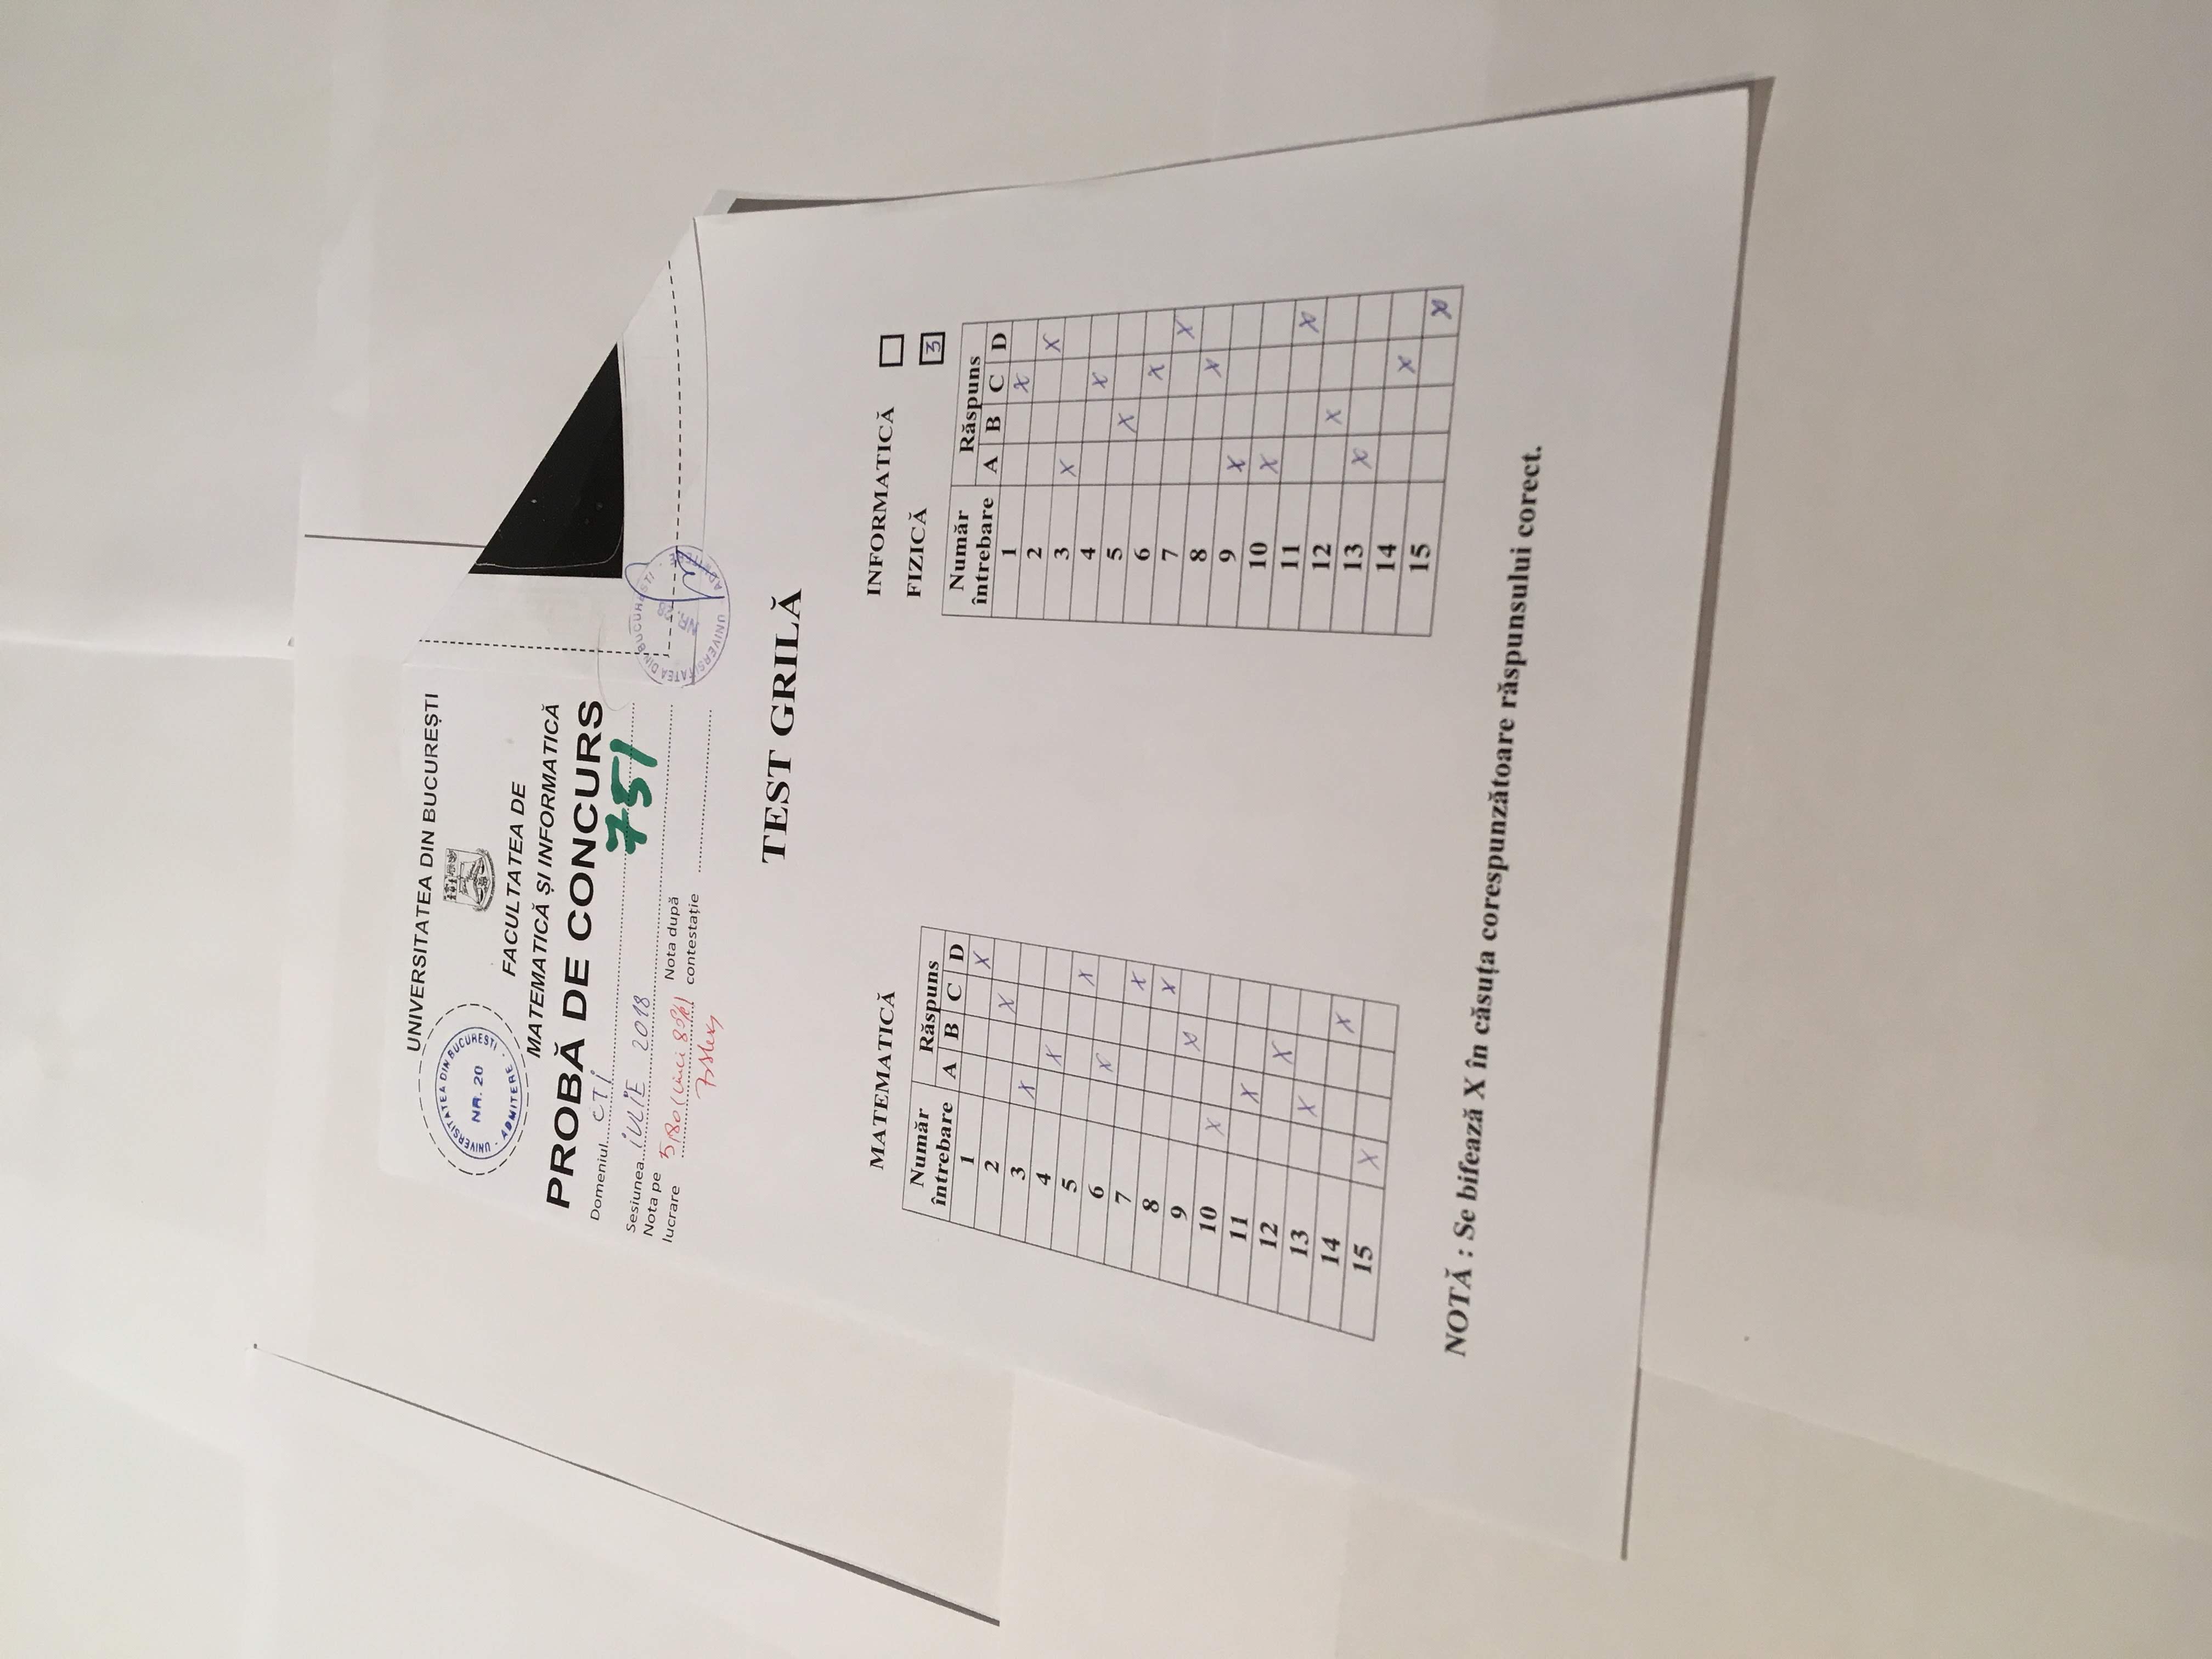 UNIVERSITATEA DIN BUCUREȘTI
UNIVERSITATEA DIN BUCUREȘTI
NR. 20
ADMITERE
FACULTATEA DE
MATEMATICĂ ȘI INFORMATICĂ
PROBĂ DE CONCURS
Domeniul CTI
751
Sesiunea IULIE 2018
Nota pe lucrare 5,80 (cinci 80%)
Nota după contestație
UNIVERSITATEA DIN BUCUREȘTI
NR. 28
ADMITERE
TEST GRILĂ
MATEMATICĂ
Număr întrebare Răspuns
A B C D
1 X
2 X
3 X
4 X
5 X
6 X
7 X
8 X
9 X
10 X
11 X
12 X
13 X
14 X
15 X
INFORMATICĂ
FIZICĂ 3
Număr întrebare Răspuns
A B C D
1 X
2 X
3 X
4 X
5 X
6 X
7 X
8 X
9 X
10 X
11 X
12 X
13 X
14 X
15 X
NOTĂ : Se bifează X în căsuța corespunzătoare răspunsului corect.